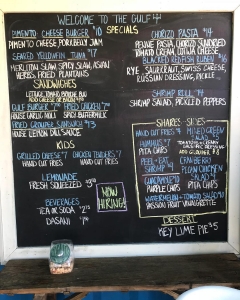 WELCOME TO THE GULF!
SPECIALS
PIMENTO CHEESE BURGER $10
PIMENTO CHEESE, PORK BELLY JAM
SEARED YELLOWFIN TUNA $17
MERLITON SLAW, SPICY SLAW, ASIAN
HERBS, FRIED PLANTAINS
SANDWICHES
LETTUCE, TOMATO, ONION, BUN
ADD CHEESE OR BACON
GULF BURGER $ FRIED CHICKEN
HOUSE GARLIC MOJO SPICY BUTTERMILK
FRIED GROUPER SANDWICH $13
HOUSE LEMON DILL SAUCE
KIDS
GRILLED CHEESE $7 CHICKEN TENDERS $7
HAND CUT FRIES HAND CUT FRIES
LEMONADE
FRESH SQUEEZED
BEVERAGES
TEA OR SODA
DASANI
NOW
HIRING!
CHORIZO PASTA $14
PENNE PASTA, CHORIZO, SUNDRIED
TOMATO CREAM, COTIJA CHEESE
BLACKENED REDFISH RUBEN $16
RYE, SAUERKRAUT, SWISS CHEESE,
RUSSIAN DRESSING, PICKLE
SHRIMP ROLL $14
SHRIMP SALAD, PICKLED PEPPERS
SHARES
SIDES
HAND CUT FRIES $4
HUMMUS $7
PITA CHIPS
PEEL + EAT
SHRIMP
GUACAMOLE $10
PURPLE CHIPS
MIXED GREEN
SALAD
CRANBERRY
PECAN CHICKEN
SALAD
PITA CHIPS
WATERMELON + TOMATO SALAD $10
PASSION FRUIT VINAIGRETTE
DESSERT
KEY LIME PIE $5